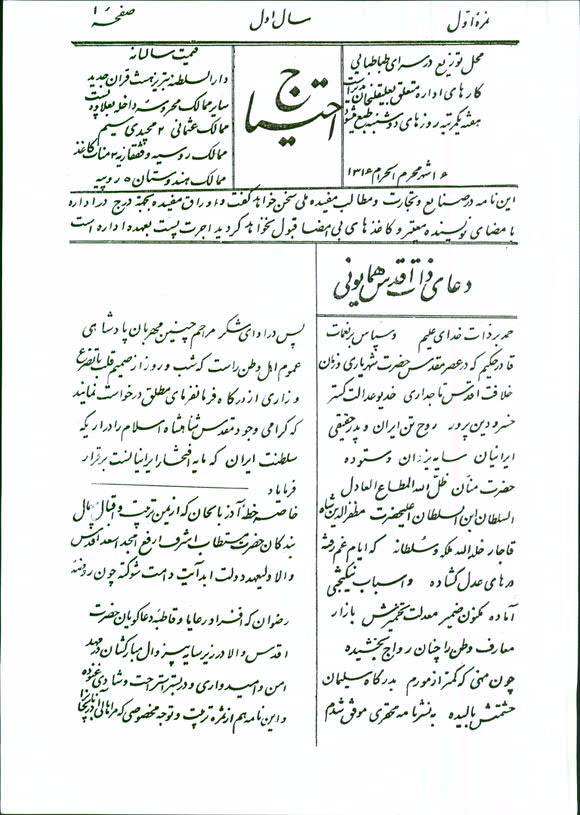 نمره اوّل
سال اوّل
صفحهٔ ۱
محل توزیع در سرای طباطبائی
کارهای اداره متعلق بعلیقلیخان
هفته یکرتبه روزهای دوشنبه طبع
۶ شهر محرم الحرام ۱۳۱۶
احتیاج
قیمت سالیانه
دارالسلطنه تبریز هشت قران جدید
سایر ممالک محروسه داخله بعلاوه پست
ممالک عثمانی ۲ مجیدی سیم
ممالک روسیه و قفقازیه ۲ منات کاغذ
ممالک هندوستان ۵ روپیه
این نامه در صنایع و تجارت و مطالب مفیده ملی سخن خواهد گفت و اوراق مفیده بجهة درج در اداره
با مضای نویسنده معتبر و کاغذهای بی امضا قبول نخواهد گردید اجرت پست بعهده اداره است
دعای ذات اقدس همایونی
حمد بر ذات خدای علیم و سپاس بر نعمات
قادر حکیم که در عصر مقدس حضرت شهریاری و زمان
خلافت اقدس تاجداری خدیو عدالت گستر
خسرو دین پرور روح تن ایران و پدر حقیقی
ایرانیان سایه یزدان و ستوده
حضرت منّان ظل الله المطاع العادل
السلطان ابن السلطان اعلیحضرت مظفرالدین شاه
قاجار خلد الله ملکه و سلطانه که ایام غم رفته
درهای عدل گشاده و اسباب نیکبختی
آماده نکون ضمیر معدلت تخمیرش بازار
معارف وطن را چنان رواج بخشیده
چون منی که کمتر از مورم بدرگاه سلیمان
حشمتش بالیده به نشر نامه محقری موفق شدم
پس در ادای شکر مراحم چنین مهربان پادشاهی
عموم اهل وطن راست که شب و روز از صمیم قلب با تضرع
و زاری از درگاه فرمانفرمای مطلق درخواست نمایند
که گرامی وجود مقدس شاهنشاه اسلام را در اریکه
سلطنت ایران که مایه افتخار ایرانیانست برقرار
فرماید
خاصه خطه آذربایجان که از یمن تربیت و اقبال
بندگان حضرت مستطاب اشرف ارفع امجد اسعد اقدس
والا ولیعهد دولت ابد آیت دامت شوکته چون روضهٔ
رضوان که افراد رعایا و قاطبه دعاگویان حضرت
اقدس والا در زیر سایه بیزوال مبارکشان در مهد
امن و امیدواری و در بستر استراحت و شادی غنوده
و این نامه هم از ثمره تربیت و توجه مخصوصی که